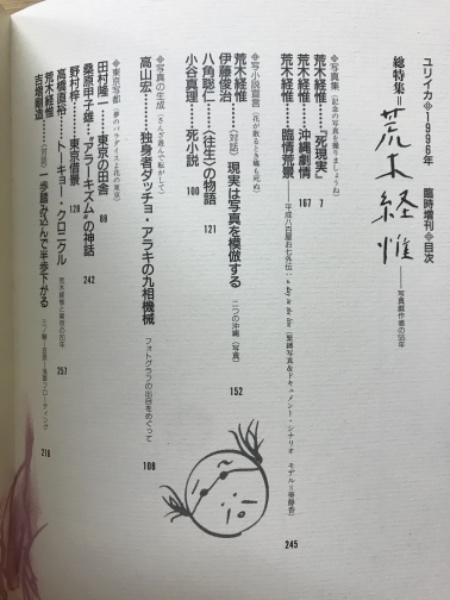 ユリイカ❖1996年 臨時増刊❖目次
総特集=荒木経惟――写真戯作者の55年
❖写真集(記念の写真を撮りましょうね)
荒木経惟――『死現実』 7
荒木経惟――沖縄劇情 167
荒木経惟――臨情荒景――平成八百屋お七外伝 (緊縛写真&ドキュメント・シナリオ モデル=華静香) 245
❖写小説宣言(花が散るとき魂も死ぬ)
荒木経惟
伊藤俊治 〈対話〉現実は写真を模倣する 二つの沖縄〈写真〉 152
八角聡仁――〈往生〉の物語 121
小谷真理――死小説 100
❖写真の生成(さんざ遊んで転がして)
高山宏――独身者ダッチョ・アラキの九相機械 フォトグラフの出自をめぐって 108
❖東京写都(夢のパラダイスよ花の東京)
田村隆一――東京の田舎 88
桑原甲子雄――“アラーキズム”の神話 242
野村梓――東京借景 128
高橋直裕――トーキョー・クロニクル 257
荒木経惟
吉増剛造 〈対話〉一歩踏み込んで半歩下がる 三ノ輪―吉原―浅草フローティング 218